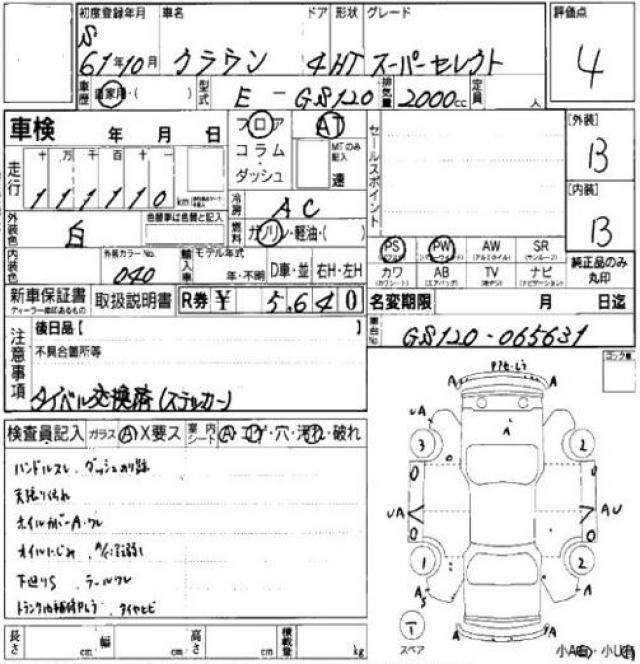 初度登録年月 車名 ドア 形状 グレード 評価点
S 61年10月 クラウン 4HT スーパーセレクト 4
車歴 自家用・( ) 型式 E-GS120 排気量 2000cc 定員 人
車検 年 月 日 フロア AT セールスポイント [外装] B
コラム・ダッシュ MTのみ記入 速
走行 十 万 千 百 十 一
111110km
冷房 AC [内装] B
外装色 白 色替車は色替と記入 燃料 ガソリン・軽油・( )
内装色 外装カラーNo. 040 輸入車 モデル年式 年・不明 D車・並 右H・左H
PS PW AW SR 純正品のみ丸印
(パワーウインド) (アルミホイル) (サンルーフ)
カワ AB TV ナビ
(カワシート) (エアバッグ) (ナビゲーション)
新車保証書 取扱説明書 R券 ¥ 5,640 名変期限 月 日迄
ディーラー捺印あるもの
車台No. GS120-065631
注意事項 後日品【 】
不具合箇所等
タイベル交換済(ステッカー)
コック車
検査員記入 ガラス A X要ス 室内シート A・コゲ・穴・汚れ・破れ
ハンドルスレ、ダッシュのり跡
天張り汚れ
ホイルカバーA・ワレ
オイルにじみ
下廻りS テールワレ
タイヤヒビ
A A
A
UA A
3 2
UA AU
1 2
AS A
T
スペア
A A
小A有・小U有
長さ cm 幅 cm 高さ cm 積載量 kg